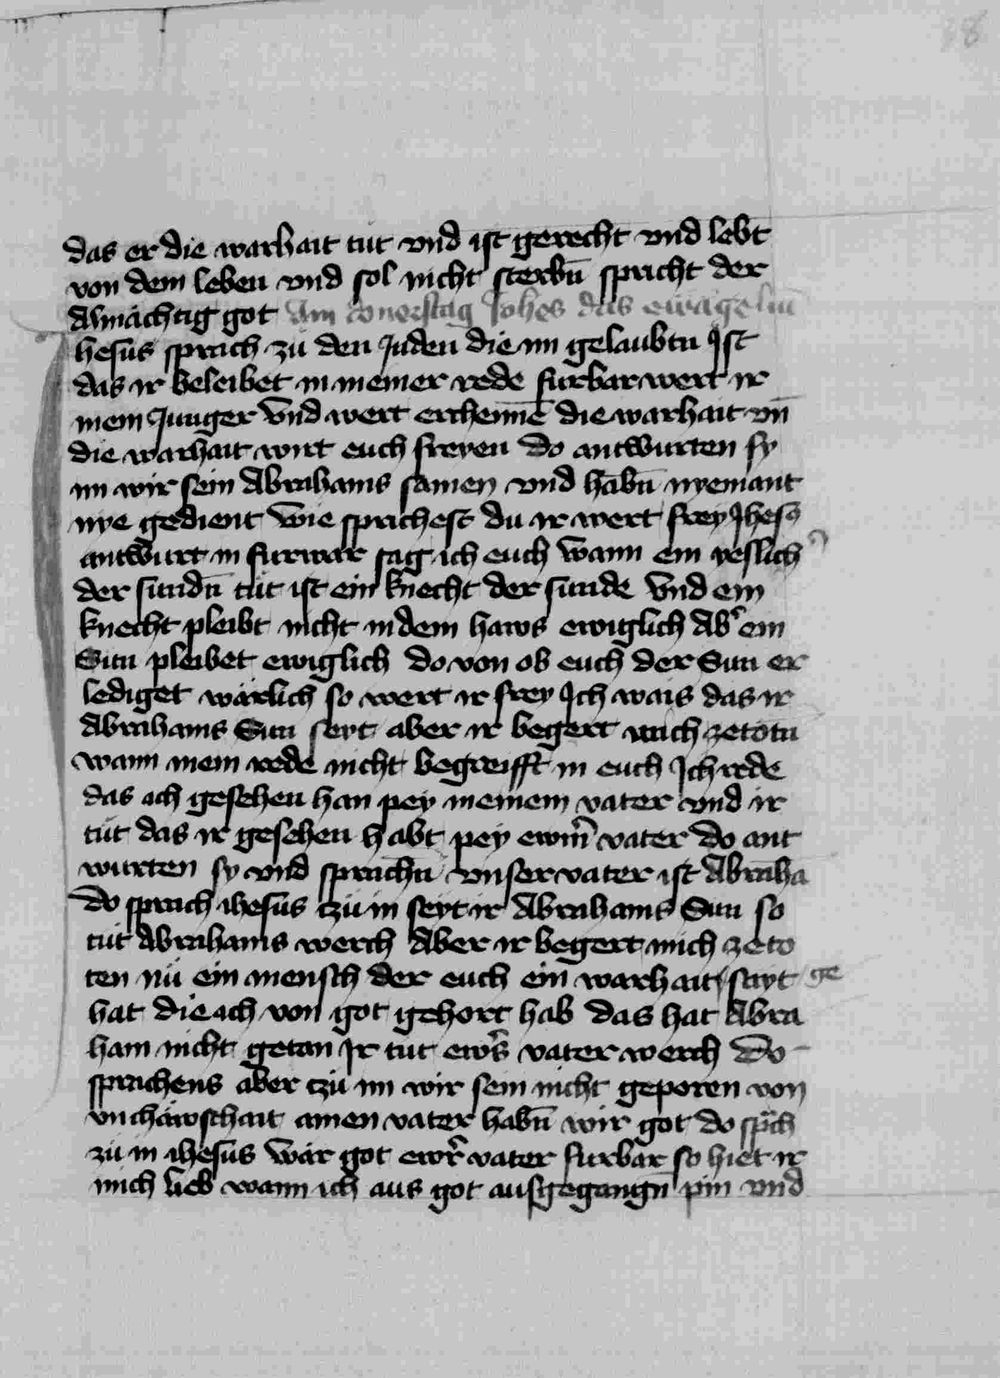 38
das er die warhait tut vnd ist gerecht vnd lebt
von dem leben vnd sol nicht sterbn̄ spricht der
Almächtig got Am donerstag Johes das ewāgeliū
Jhesus sprach zů den Juden die im gelaubtn Ist
das ir beleibet in meiner rede furbar wert ir
mein Junger Vnd wert erchennē die warhait vn̄
die warhait wirt euch freyen do antwurten sy
im wir sein Abrahams samen vnd habn̄ nyemant
nye gedient wie sprichest du ir wert frey Jhesꝰ
antwurt in furwar sag ich euch wann ein yeslichꝰ
der sundn̄ tut ist ein knecht der sunde Vnd ein
knecht pleibt nicht in dem haws ewiglich Abˀ ein
Sun pleibet ewiglich do von ob euch der Sun er
lediget wärlich so wert ir frey Ich wais das ir
Abrahams Sun seyt aber ir begert mich zetotn
wann mein rede nicht begreifft in euch Ich rede
das ich gesehen han pey meinem vater vnd ir
tůt das ir gesehen habt pey ewrm̄ vater do ant
wurten sy vnd sprachn̄ vnser vater ist Abrahā
do sprach ihesus czů in seyt ir Abrahams Sun so
tůt Abrahams werch Aber ir begert mich zeto
ten nů ein mensch der euch ein warhait sayt ge
hat die ich von got gehort hab das hat Abra
ham nicht getan Ir tut ewrs vater werch Do
sprachens aber czů im wir sein nicht geporen von
vnchäwschait ainen vater habn̄ wir got do sprach
zů in ihesus wär got ewrˀ vater furbar so hiet ir
mich lieb wann ich aus got ausgegangn̄ pin vnd